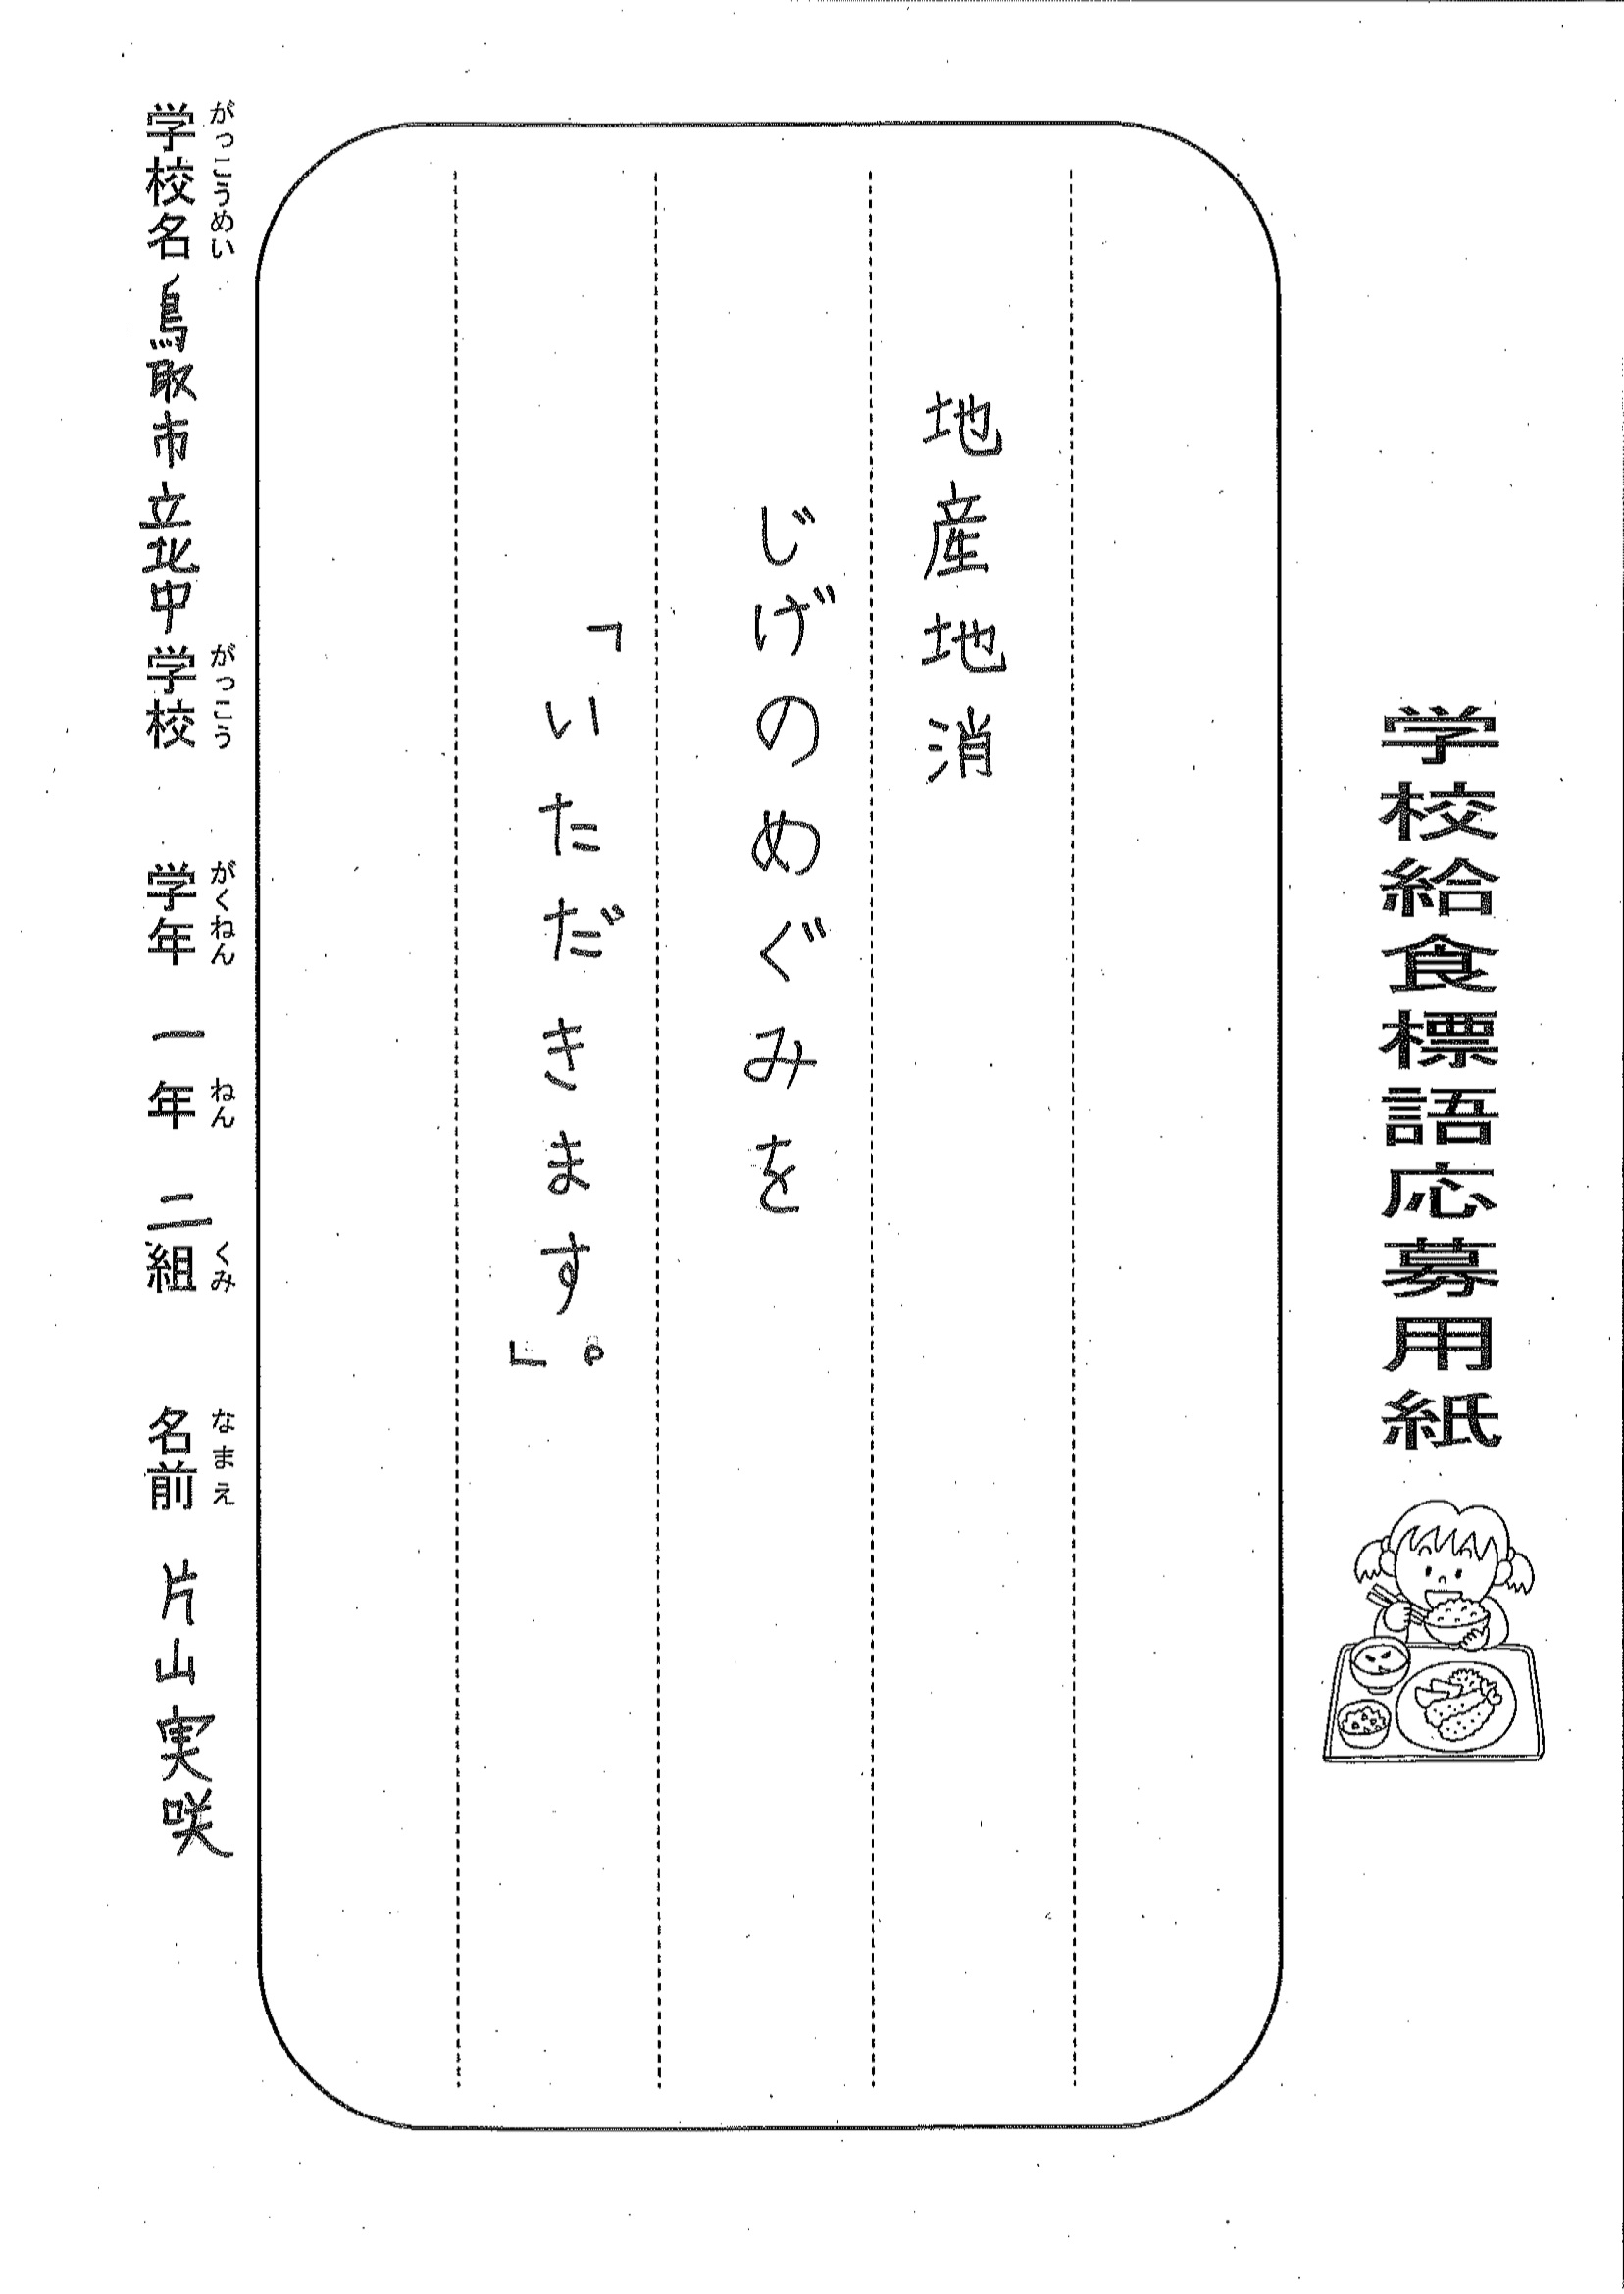 学校給食標語応募用紙
地産地消
じげのめぐみを
「いただきます。」
がっこうめい がっこう がくねん ねん くみ なまえ
学校名 鳥取市立北中学校 学年 一年 二組 名前 片山実咲